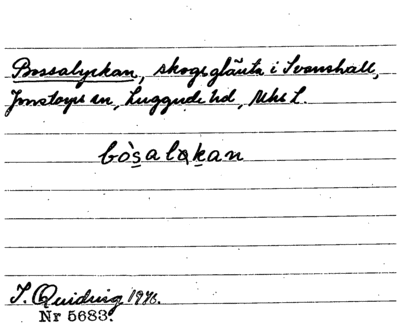 Bossalyckan, skogsglänta i Svenshall,
Jonstorps sn, Luggude hd, Mhs L.
bòsalykan
T. Quidwig 1976.
Nr 5683.